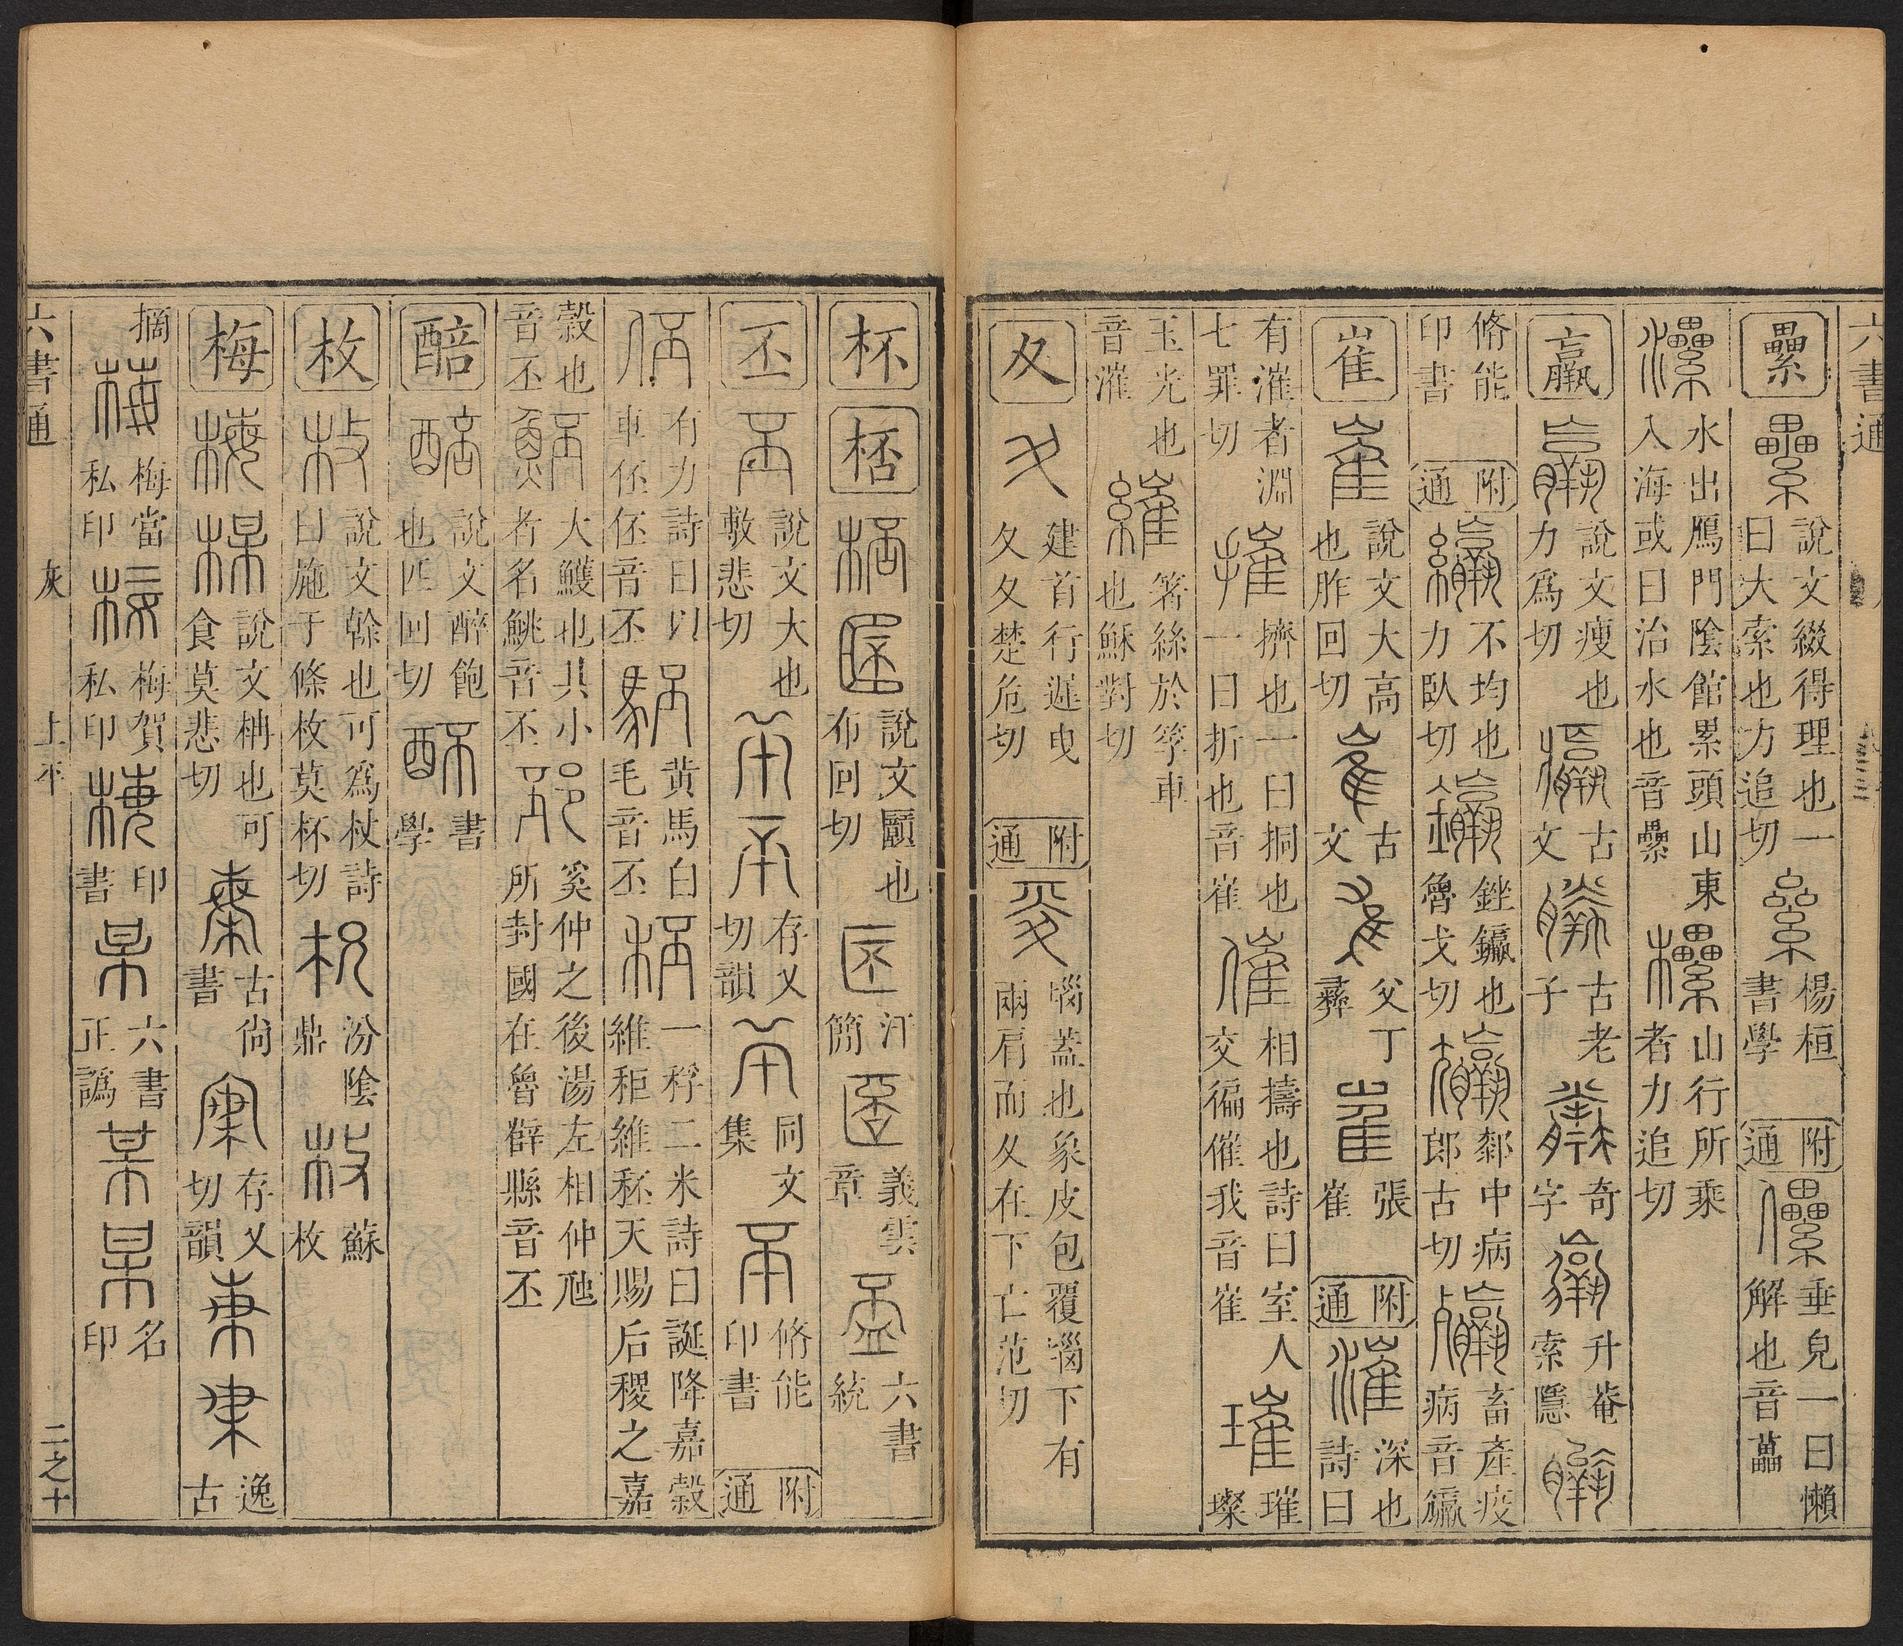 六書通
纍 說文綴得理也一曰大索也力追切 楊桓書學 附通 儽 垂皃一曰懶解也音藟
灅 水出鴈門陰館累頭山東入海或曰治水也音纍 欙 山行所乘者力追切
羸 說文瘦也力爲切 古文 古老子 奇字 升菴索隱
脩能印書 附通 不均也力臥切 銼鑼也魯戈切 郯中病郎古切 畜產疫病音羸
崔 說文大高也胙回切 古文 父丁彞 張崔 附通 漼 深也詩曰
有漼者淵七罪切 摧 擠也一曰挏也一曰折也音崔 催 相擣也詩曰室人交徧催我音崔 璀 璀璨
玉光也音漼 繀 箸絲於筟車也穌對切
夊 建首行遲曳夊夊夊楚危切 附通 㚇 惱蓋也象皮包覆惱下有兩肩而夊在下亡范切
杯 桮 說文𠥩也布回切 汗簡 義雲章 六書統
丕 說文大也敷悲切 存乂切韻 同文集 脩能印書 附通
伾 有力詩曰以車伾伾音丕 駓 黄馬白毛音丕 秠 一稃二米詩曰誕降嘉穀維秠維秬天賜后稷之嘉
穀也音丕 魾 大鱯也其小者名鮡音丕 邳 奚仲之後湯左相仲虺所封國在魯辥縣音丕
醅 說文醉飽也匹回切 書學
枚 說文榦也可爲杖詩曰施于條枚莫杯切 汾陰鼎 蘇枚
梅 說文枏也可食莫悲切 古尙書 存乂切韻 逸古
摘 梅當私印 梅賀私印 印書 六書正譌 名印
六書通 灰 上平 二之十